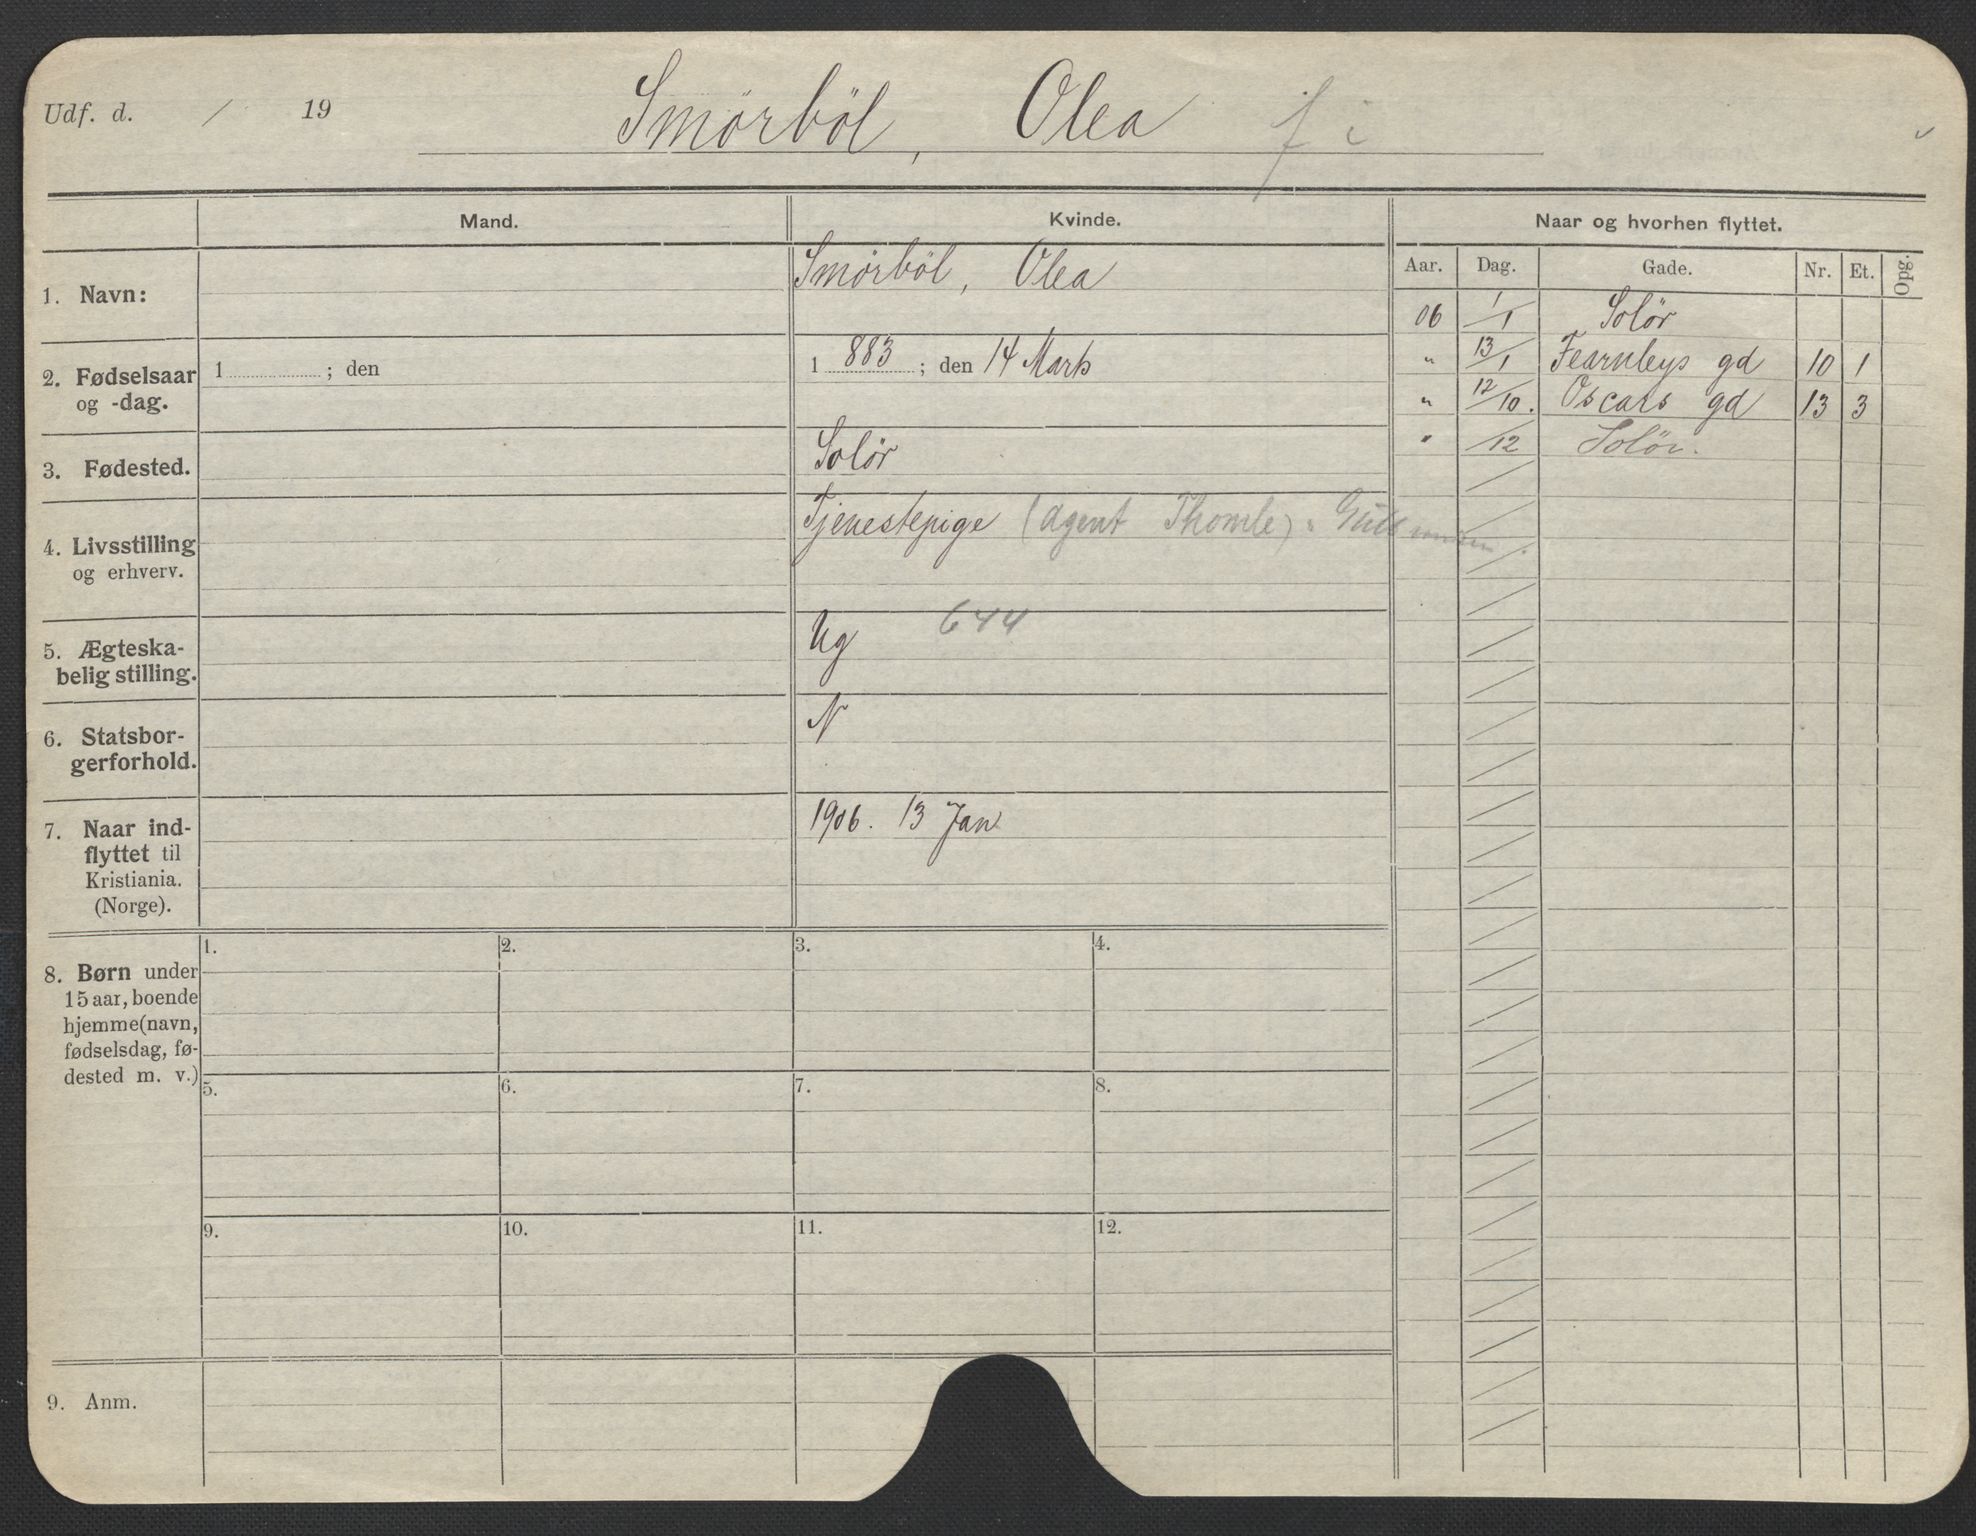 Udf. d. / 19
Smörböl, Olea f i
Mand. Kvinde. Naar og hvorhen flyttet.
Aar. Dag. Gade. Nr. Et. Opg.
1. Navn: Smörböl, Olea
06 1/1 Solör
2. Fødselsaar og -dag.
1 ; den
1 883 ; den 14 Marts
" 13/1 Fearnleys gd 10 1
" 12/10. Oscars gd 13 3
3. Fødested. Solör
" /12 Solör.
4. Livsstilling og erhverv.
Tjenestepige (agent Thomle)
5. Ægteska-
belig stilling.
Ug 644
6. Statsbor-
gerforhold.
N
7. Naar ind-
flyttet til
Kristiania.
(Norge).
1906. 13 Jan
8. Børn under
15 aar, boende
hjemme (navn,
fødselsdag, fø-
dested m. v.)
1. 2. 3. 4.
5. 6. 7. 8.
9. 10. 11. 12.
9. Anm.